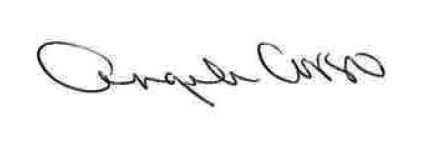 Angela Corso